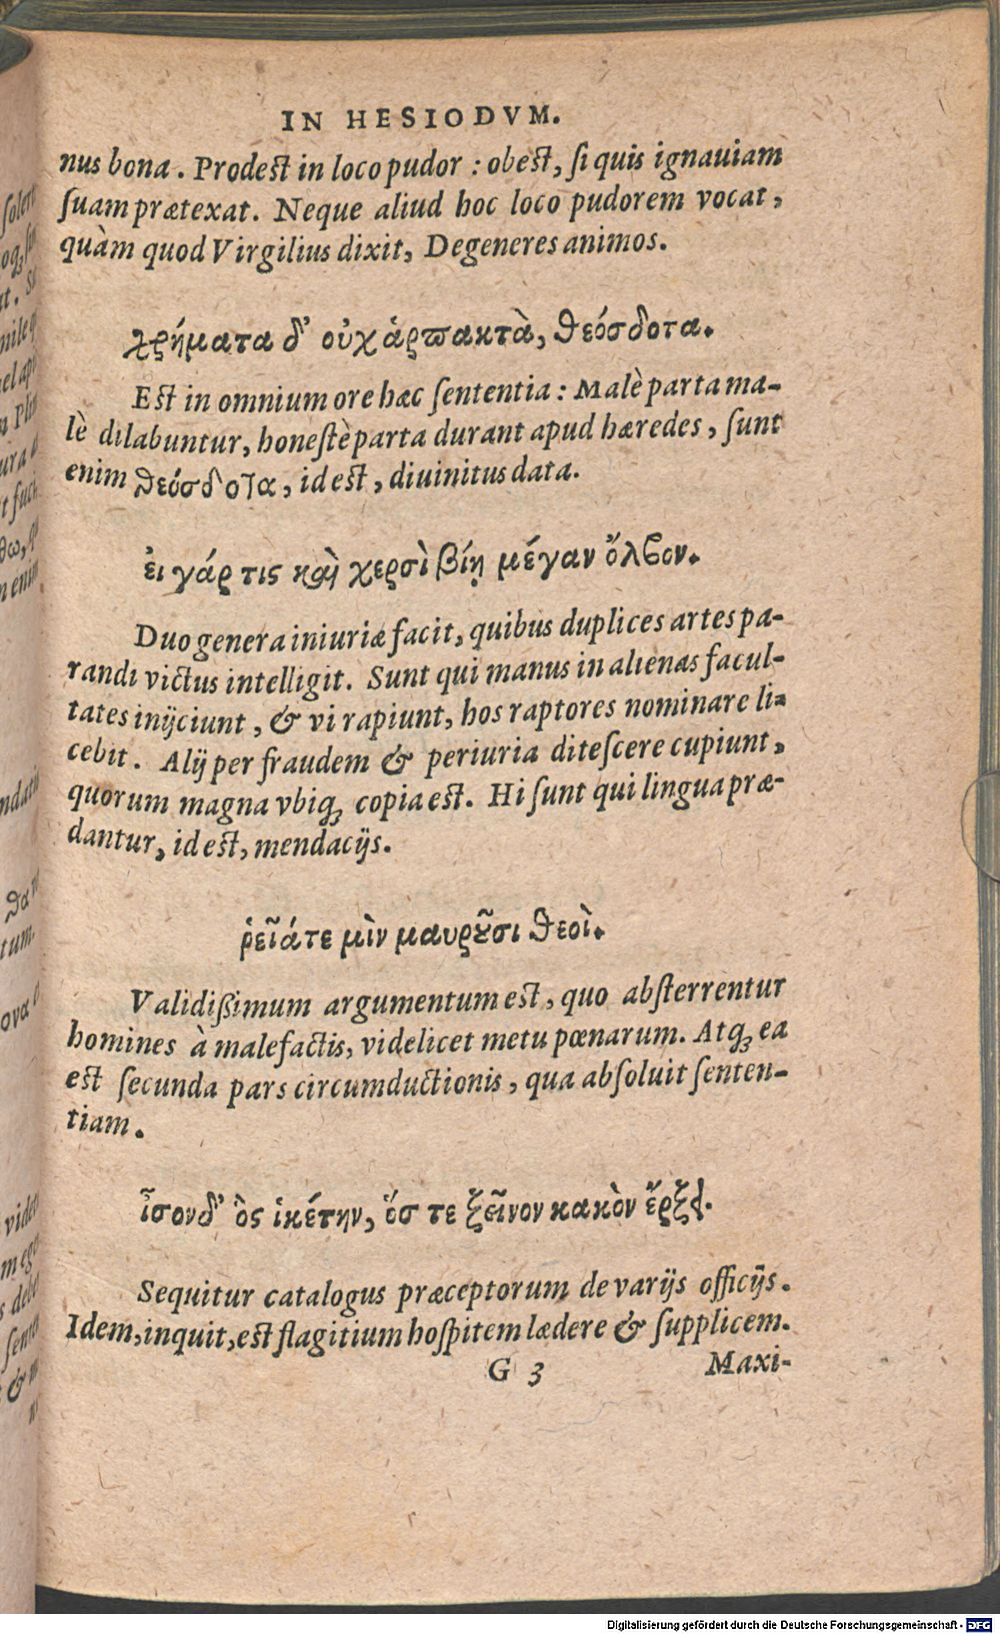 IN HESIODVM.
nus bona. Prodest in loco pudor : obest, si quis ignauiam
suam prætexat. Neque aliud hoc loco pudorem vocat,
quàm quod Virgilius dixit, Degeneres animos.
χρήματα δ' οὐχ ἁρπακτὰ, θεόσδοτα.
Est in omnium ore hæc sententia : Malè parta ma-
lè dilabuntur, honestè parta durant apud hæredes, sunt
enim θεόσδοτα, id est, diuinitus data.
ἐι γάρ τις καὶ χερσὶ βίῃ μέγαν ὄλβον.
Duo genera iniuriæ facit, quibus duplices artes pa-
randi victus intelligit. Sunt qui manus in alienas facul-
tates inijciunt, & vi rapiunt, hos raptores nominare li-
cebit. Alij per fraudem & periuria ditescere cupiunt,
quorum magna vbiq; copia est. Hi sunt qui lingua præ-
dantur, id est, mendacijs.
ῥεῖάτε μὶν μαυροῦσι θεοὶ.
Validißimum argumentum est, quo absterrentur
homines à malefactis, videlicet metu pœnarum. Atq; ea
est secunda pars circumductionis, qua absoluit senten-
tiam.
ἶσον δ' ὃς ἱκέτην, ὅσ τε ξεῖνον κακὸν ἔρξει.
Sequitur catalogus præceptorum de varijs officijs.
Idem, inquit, est flagitium hospitem lædere & supplicem.
G 3 Maxi-
Digitalisierung gefördert durch die Deutsche Forschungsgemeinschaft - DFG